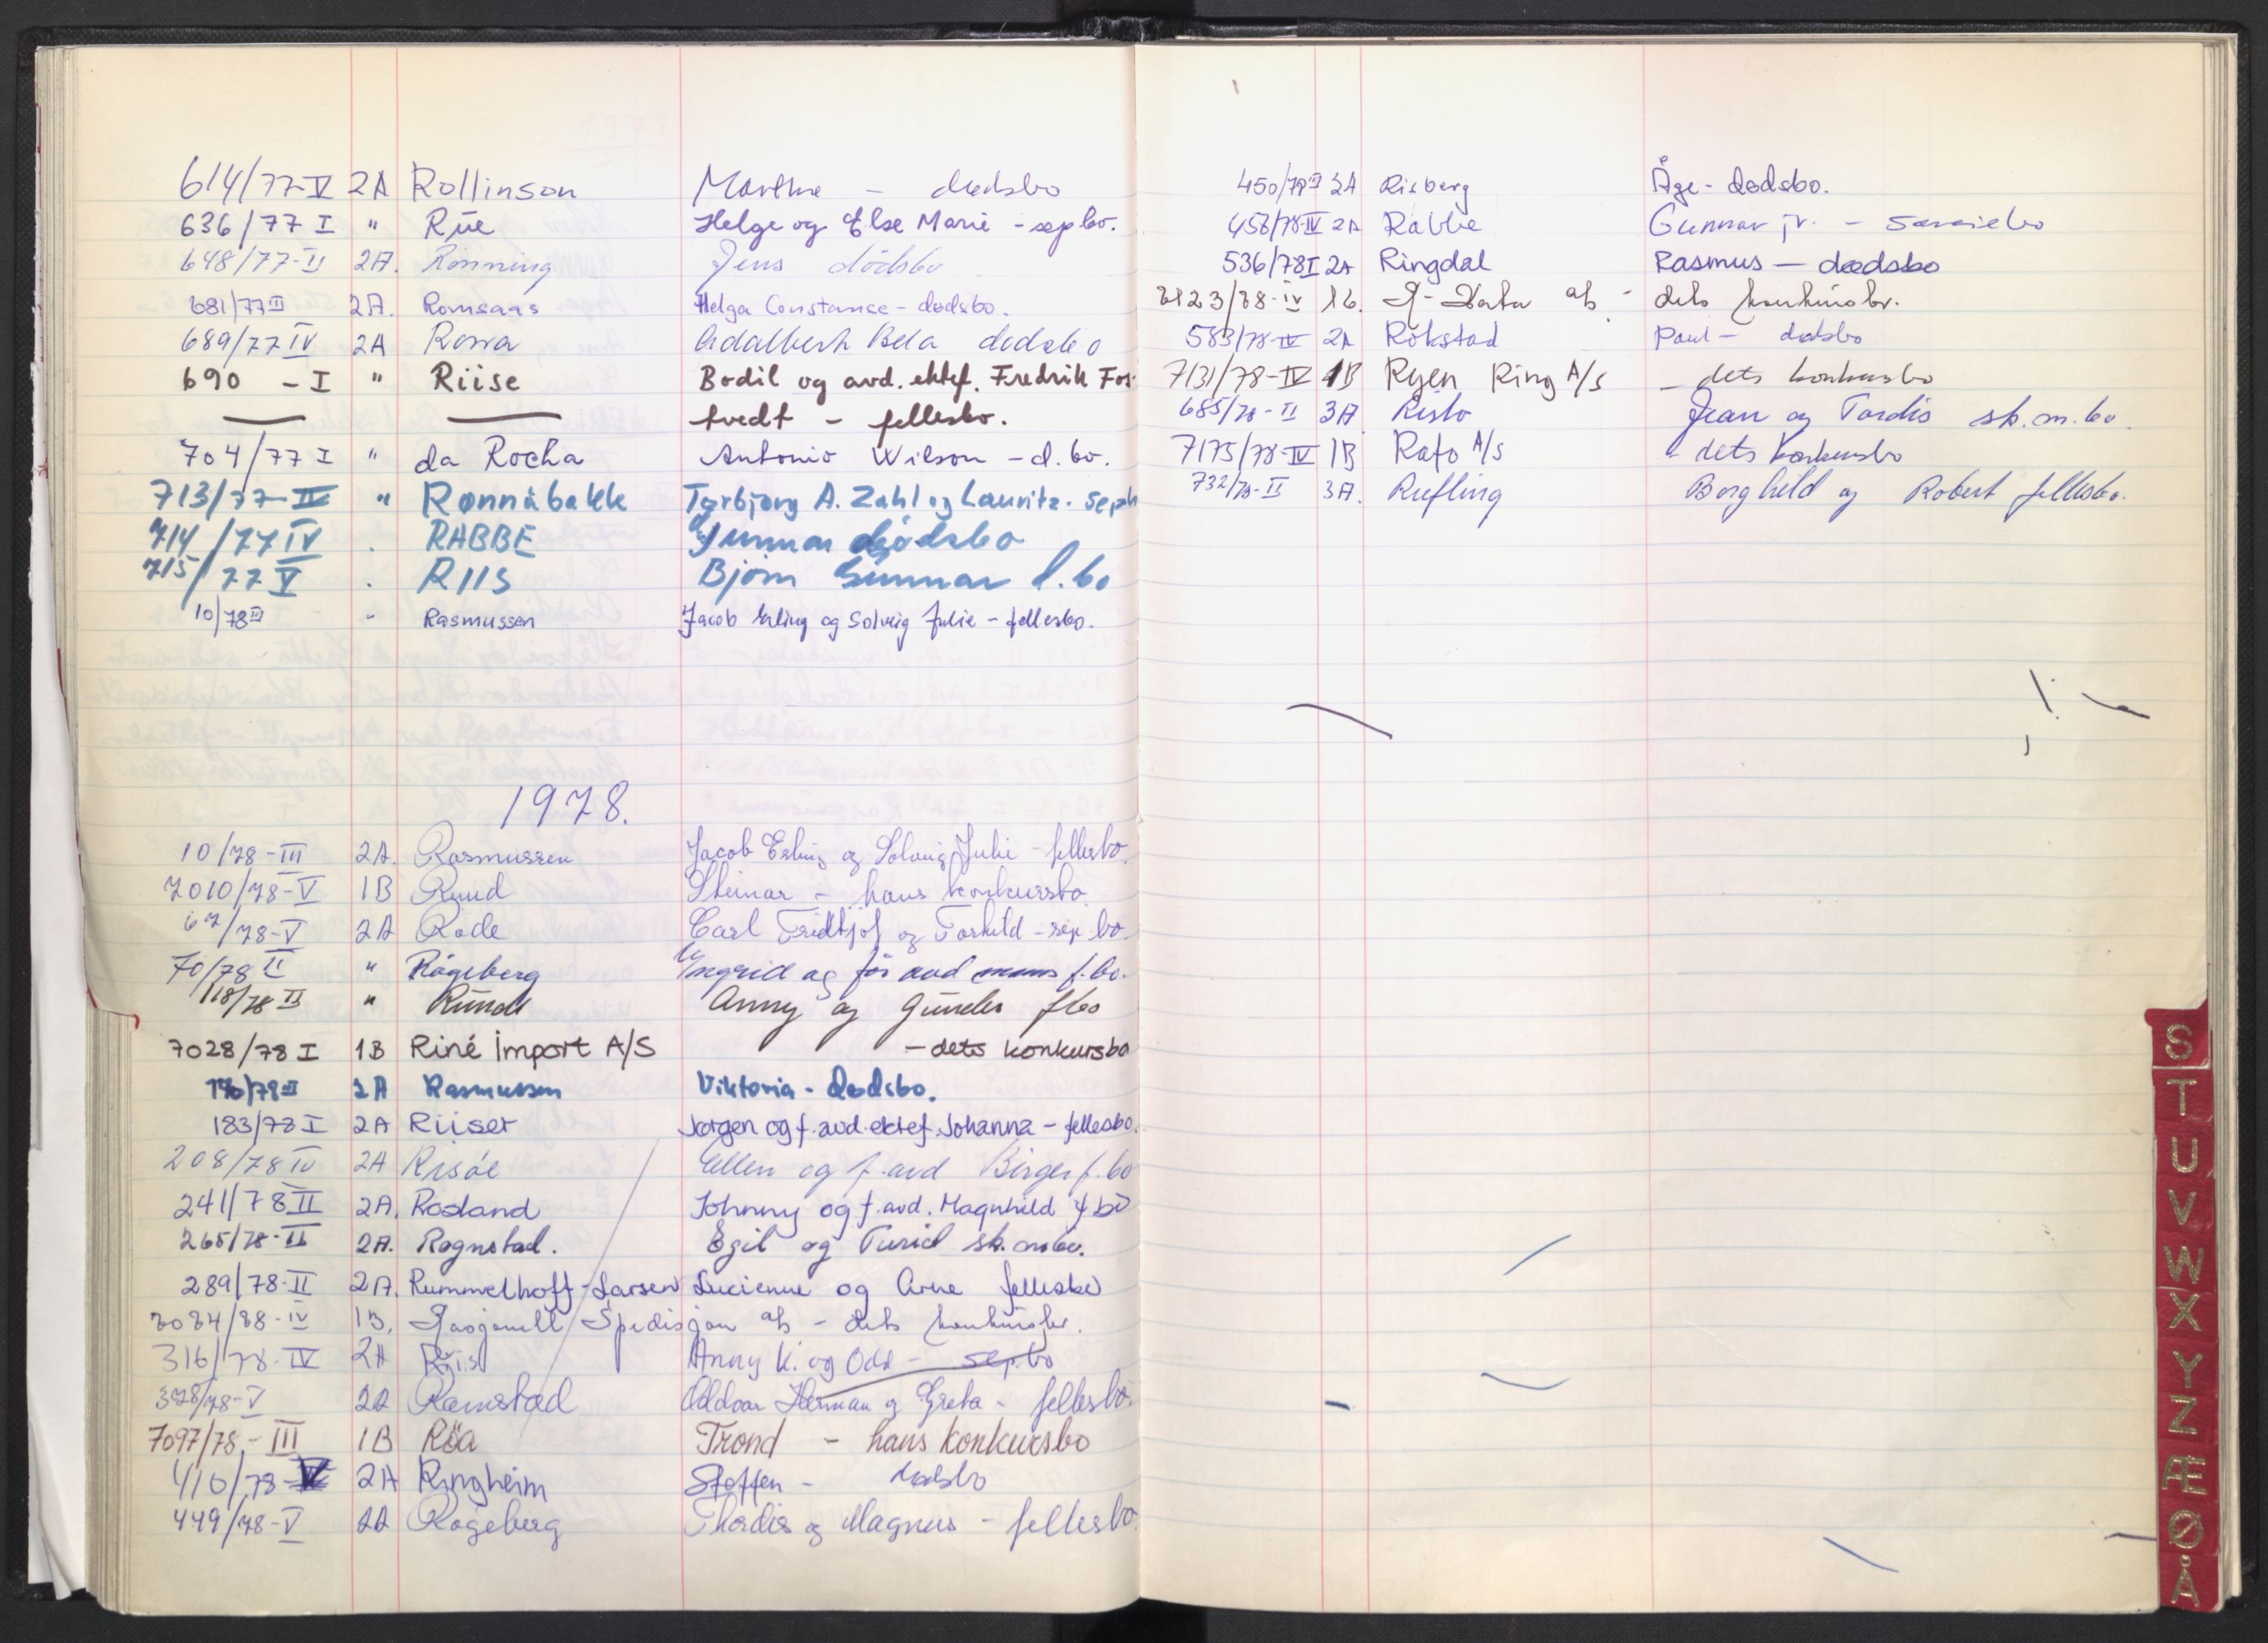 614/77-V 2A Rollinson Marthe - dødsbo
636/77 I " Rue Helge og Else Marie - sepbo.
648/77-II 2A. Rønning Jens dødsbo
681/77 III 2A. Romsaas Helga Constance - dødsbo.
689/77 IV 2A Rosra Adalbert Bela dødsbo
690 - I " Riise Bodil og avd. ektef. Fredrik Fos
tvedt - fellesbo.
704/77 I " da Rocha Antonio Wilson - d.bo.
713/77-IV " Rønnåbakk Torbjørg A. Zahl og Lauritz. sepb
714/77 IV . RABBE Gunnar dødsbo
715/77 V . RIIS Bjørn Gunnar d.bo
10/78 III " Rasmussen Jacob Erling og Solveig Julie - fellesbo.
1978.
10/78-III 2A. Rasmussen Jacob Erling og Solveig Julie - fellesbo.
7010/78-V 1B Ruud Steinar - hans konkursbo.
67/78-V 2A Rode Carl Fridtjof og Torhild - sep bo.
70/78 II " Rågeberg Ingrid og før avd manns f.bo.
118/78 II " Runde Anny og Gunder f bo
7028/78 I 1B Riné import A/S - dets konkursbo
170/78 II 2A Rasmussen Viktoria - dødsbo.
183/78 I 2A Riiser Jørgen og f. avd. ektef. Johanna - fellesbo.
208/78 IV 2A Risøe Ellen og f. avd Birger f.bo
241/78 II 2A. Rosland Johnny og f. avd. Magnhild f bo
265/78-II 2A. Rognstad. Egil og Turid sk.om.bo.
289/78-II 2A. Rummelhoff-Larsen Lucienne og Arne fellesbo
7084/78-IV 1B. Spedisjon A/S - dets konkursbo.
316/78-IV 2A Riis Anny K. og Odd - sep.bo
378/78-V 2A Ramstad Oddvar Herman og Greta - fellesbo.
7097/78 - III 1B Röa Trond - hans konkursbo
410/78-V 2A Ringheim Steffen - dødsbo
449/78-V 2A Rågeberg Thordis og Magnus - fellesbo.
450/78 III 2A Risberg Åge - dødsbo.
458/78-IV 2A Rabbe Gunnar jr. - særeiebo
536/78 I 2A Ringdal Rasmus - dødsbo
7123/78-IV 1B. R-Data A/S - dets konkursbo.
583/78-IV 2A Rökstad Paul - dødsbo
7131/78-IV 1B Ryen Ring A/S - dets konkursbo
685/78-II 3A Risto Jean og Tordis sk.om.bo.
7175/78-IV 1B Rafo A/S - dets konkursbo
732/78-II 3A. Riefling Borghild og Robert fellesbo.
S
T
U
V
W
X
Y
Z
Æ
Ø
Å